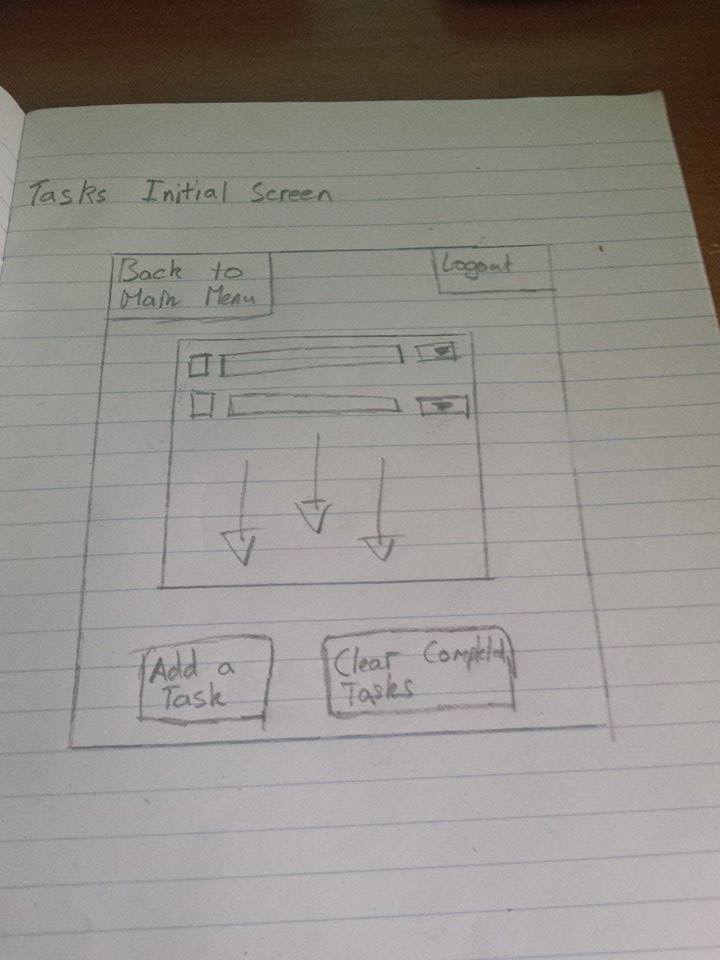 Tasks Initial Screen
Back to
Main Menu
Logout
Add a
Task
Clear Completed
Tasks